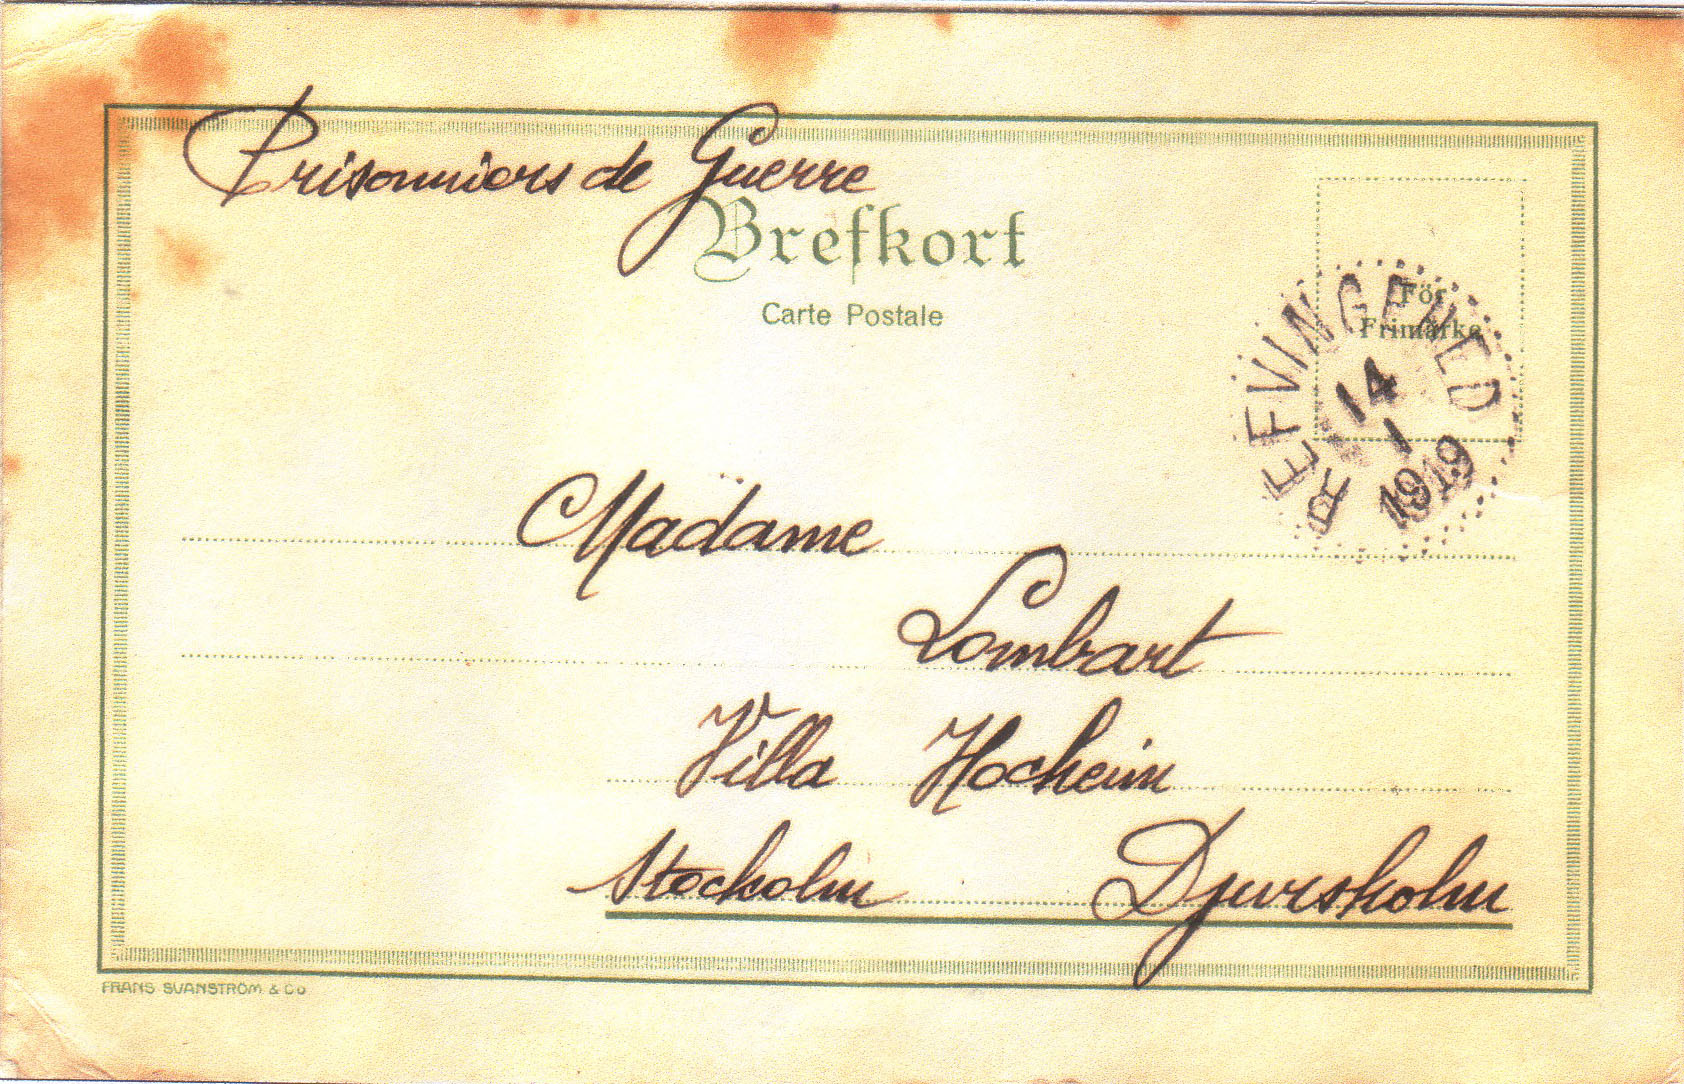 Prisonniers de Guerre
Brefkort
Carte Postale
För
Frimärke
REFVINGEHED
14
1
1919
Madame
Lombart
Villa Hocheim
Stockolm Djursholm
FRANS SVANSTRÖM & Co